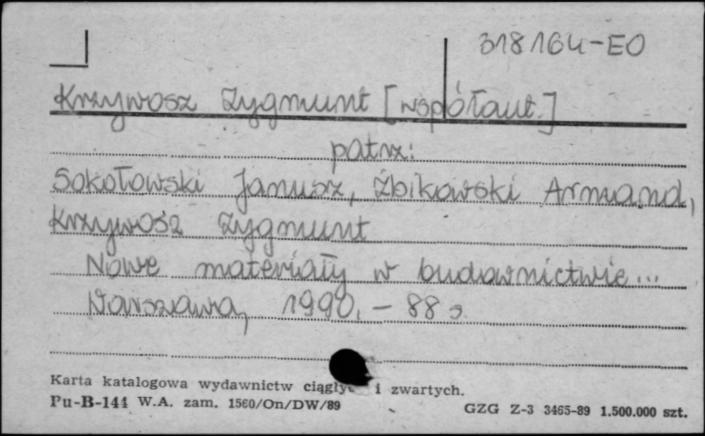 318164-EO
Krzywosz Zygmunt [współaut.]
patrz:
Sokołowski Janusz, Żbikowski Armand,
Krzywosz Zygmunt
Nowe materiały w budownictwie...
Warszawa, 1990. - 88 s
Karta katalogowa wydawnictw ciągłyc i zwartych.
Pu-B-144 W.A. zam. 1560/On/DW/89
GZG Z-3 3465-89 1.500.000 szt.